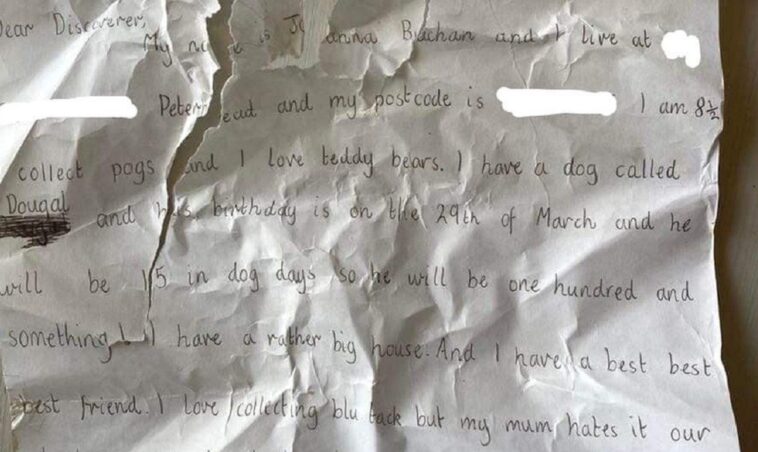 Dear Discoverer,
My name is Joanna Buchan and I live at
Peterhead and my postcode is I am 8½
collect pogs and I love teddy bears. I have a dog called
Dougal and his birthday is on the 29th of March and he
will be 15 in dog days so he will be one hundred and
something! I have a rather big house. And I have a best best
best friend. I love collecting blu tack but my mum hates it our